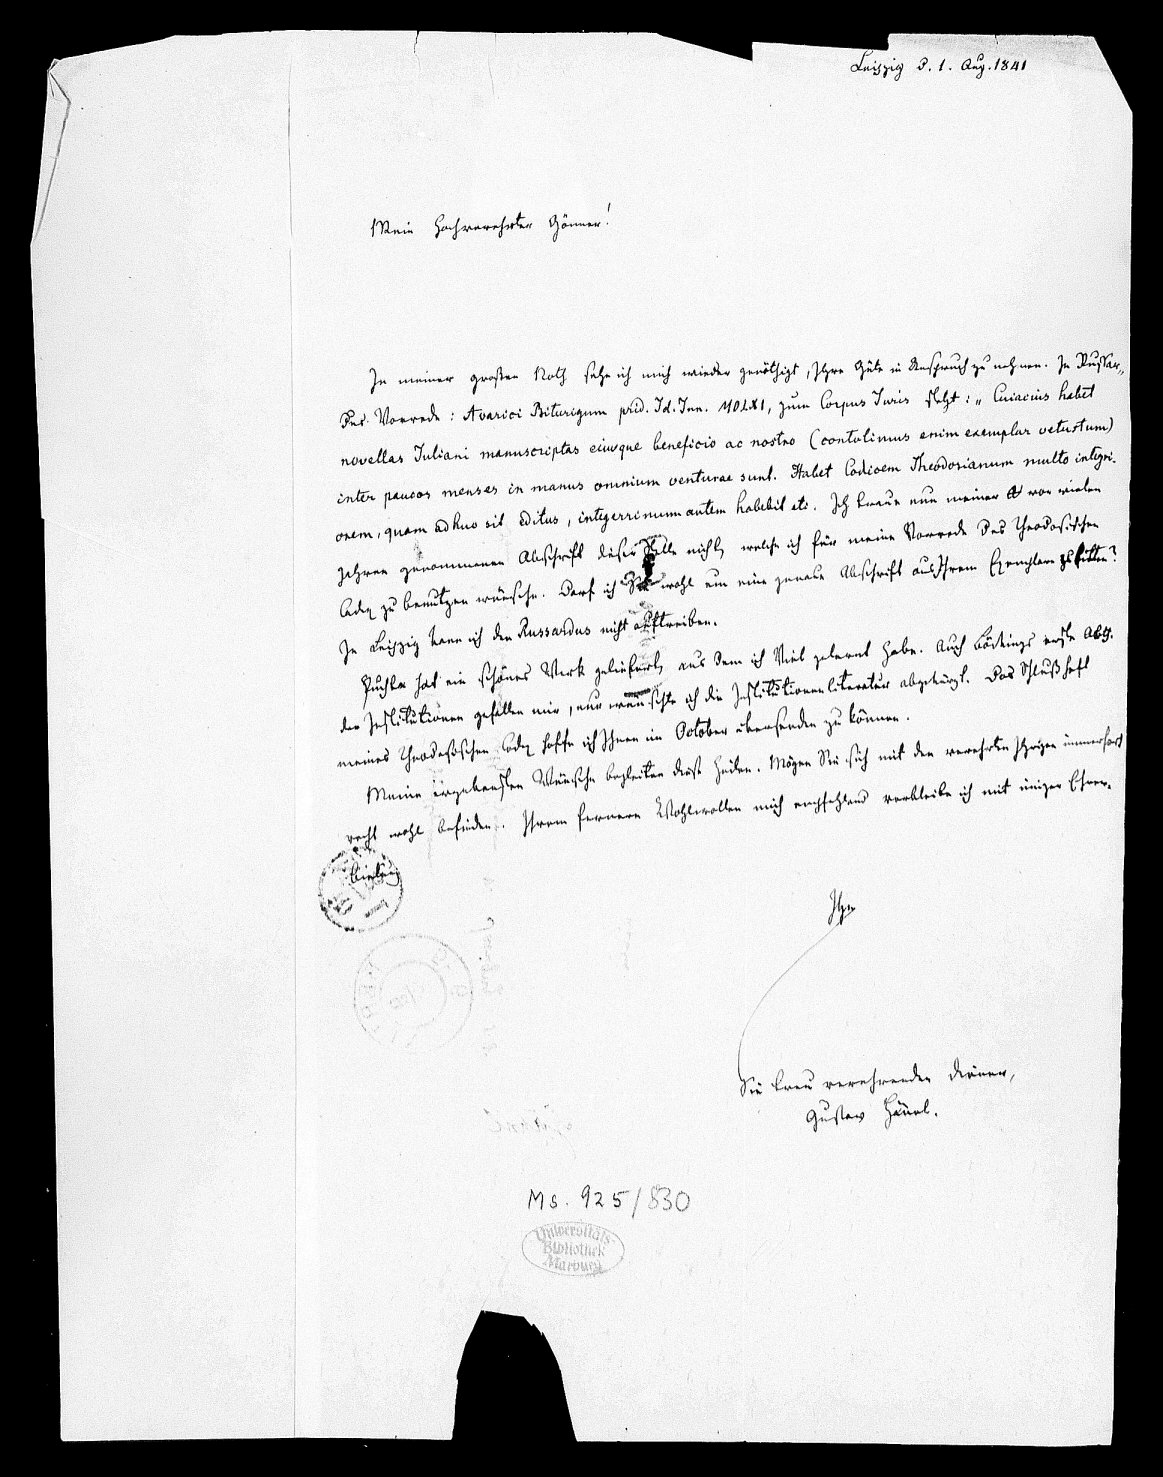 Leipzig d. 1. Aug. 1841
Mein hochverehrter Gönner!
In meiner großen Noth sehe ich mich wieder genöthigt, Ihre Güte in Anspruch zu nehmen. In Russar„
dus Vorrede: Avarici Biturigum prid. Id. Jun. MDLXI, zum Corpus Juris steht: „Cuiacius habet
novellas Juliani manuscriptas eiusque beneficio ac nostro (contulimus enim exemplar vetustum)
inter paucos menses in manus omnium venturae sunt. Habet Codicem Theodosianum multo integri-
orem, quam adhuc sit editus, integerrimum autem habebit etc. Ich traue nun meiner vor vielen
Jahren genommenen Abschrift dieser Stelle nicht, welche ich für meine Vorrede des Theodosischen
Codex zu benutzen wünsche. Darf ich Sie wohl um eine genaue Abschrift aus Ihrem Exemplare bitten?
In Leipzig kann ich den Russardus nicht auftreiben.
Puchta hat ein schönes Werk geliefert, aus dem ich Viel gelernt habe. Auch Böckings erste Abth.
der Institutionen gefallen mir, nur wünschte ich die Institutionenliteratur abgekürzt. Das Schlußheft
meines Theodosischen Codex hoffe ich Ihnen im October übersenden zu können.
Meine ergebensten Wünsche begleiten diese Zeilen. Mögen Sie sich mit den verehrten Ihrigen immerfort
recht wohl befinden. Ihrem fernern Wohlwollen mich empfehlend verbleibe ich mit inniger Ehrer-
bietung
Ihr
Sie treu verehrender Diener,
Gustav Hänel.
Ms. 925/830
Universitäts-
Bibliothek
Marburg